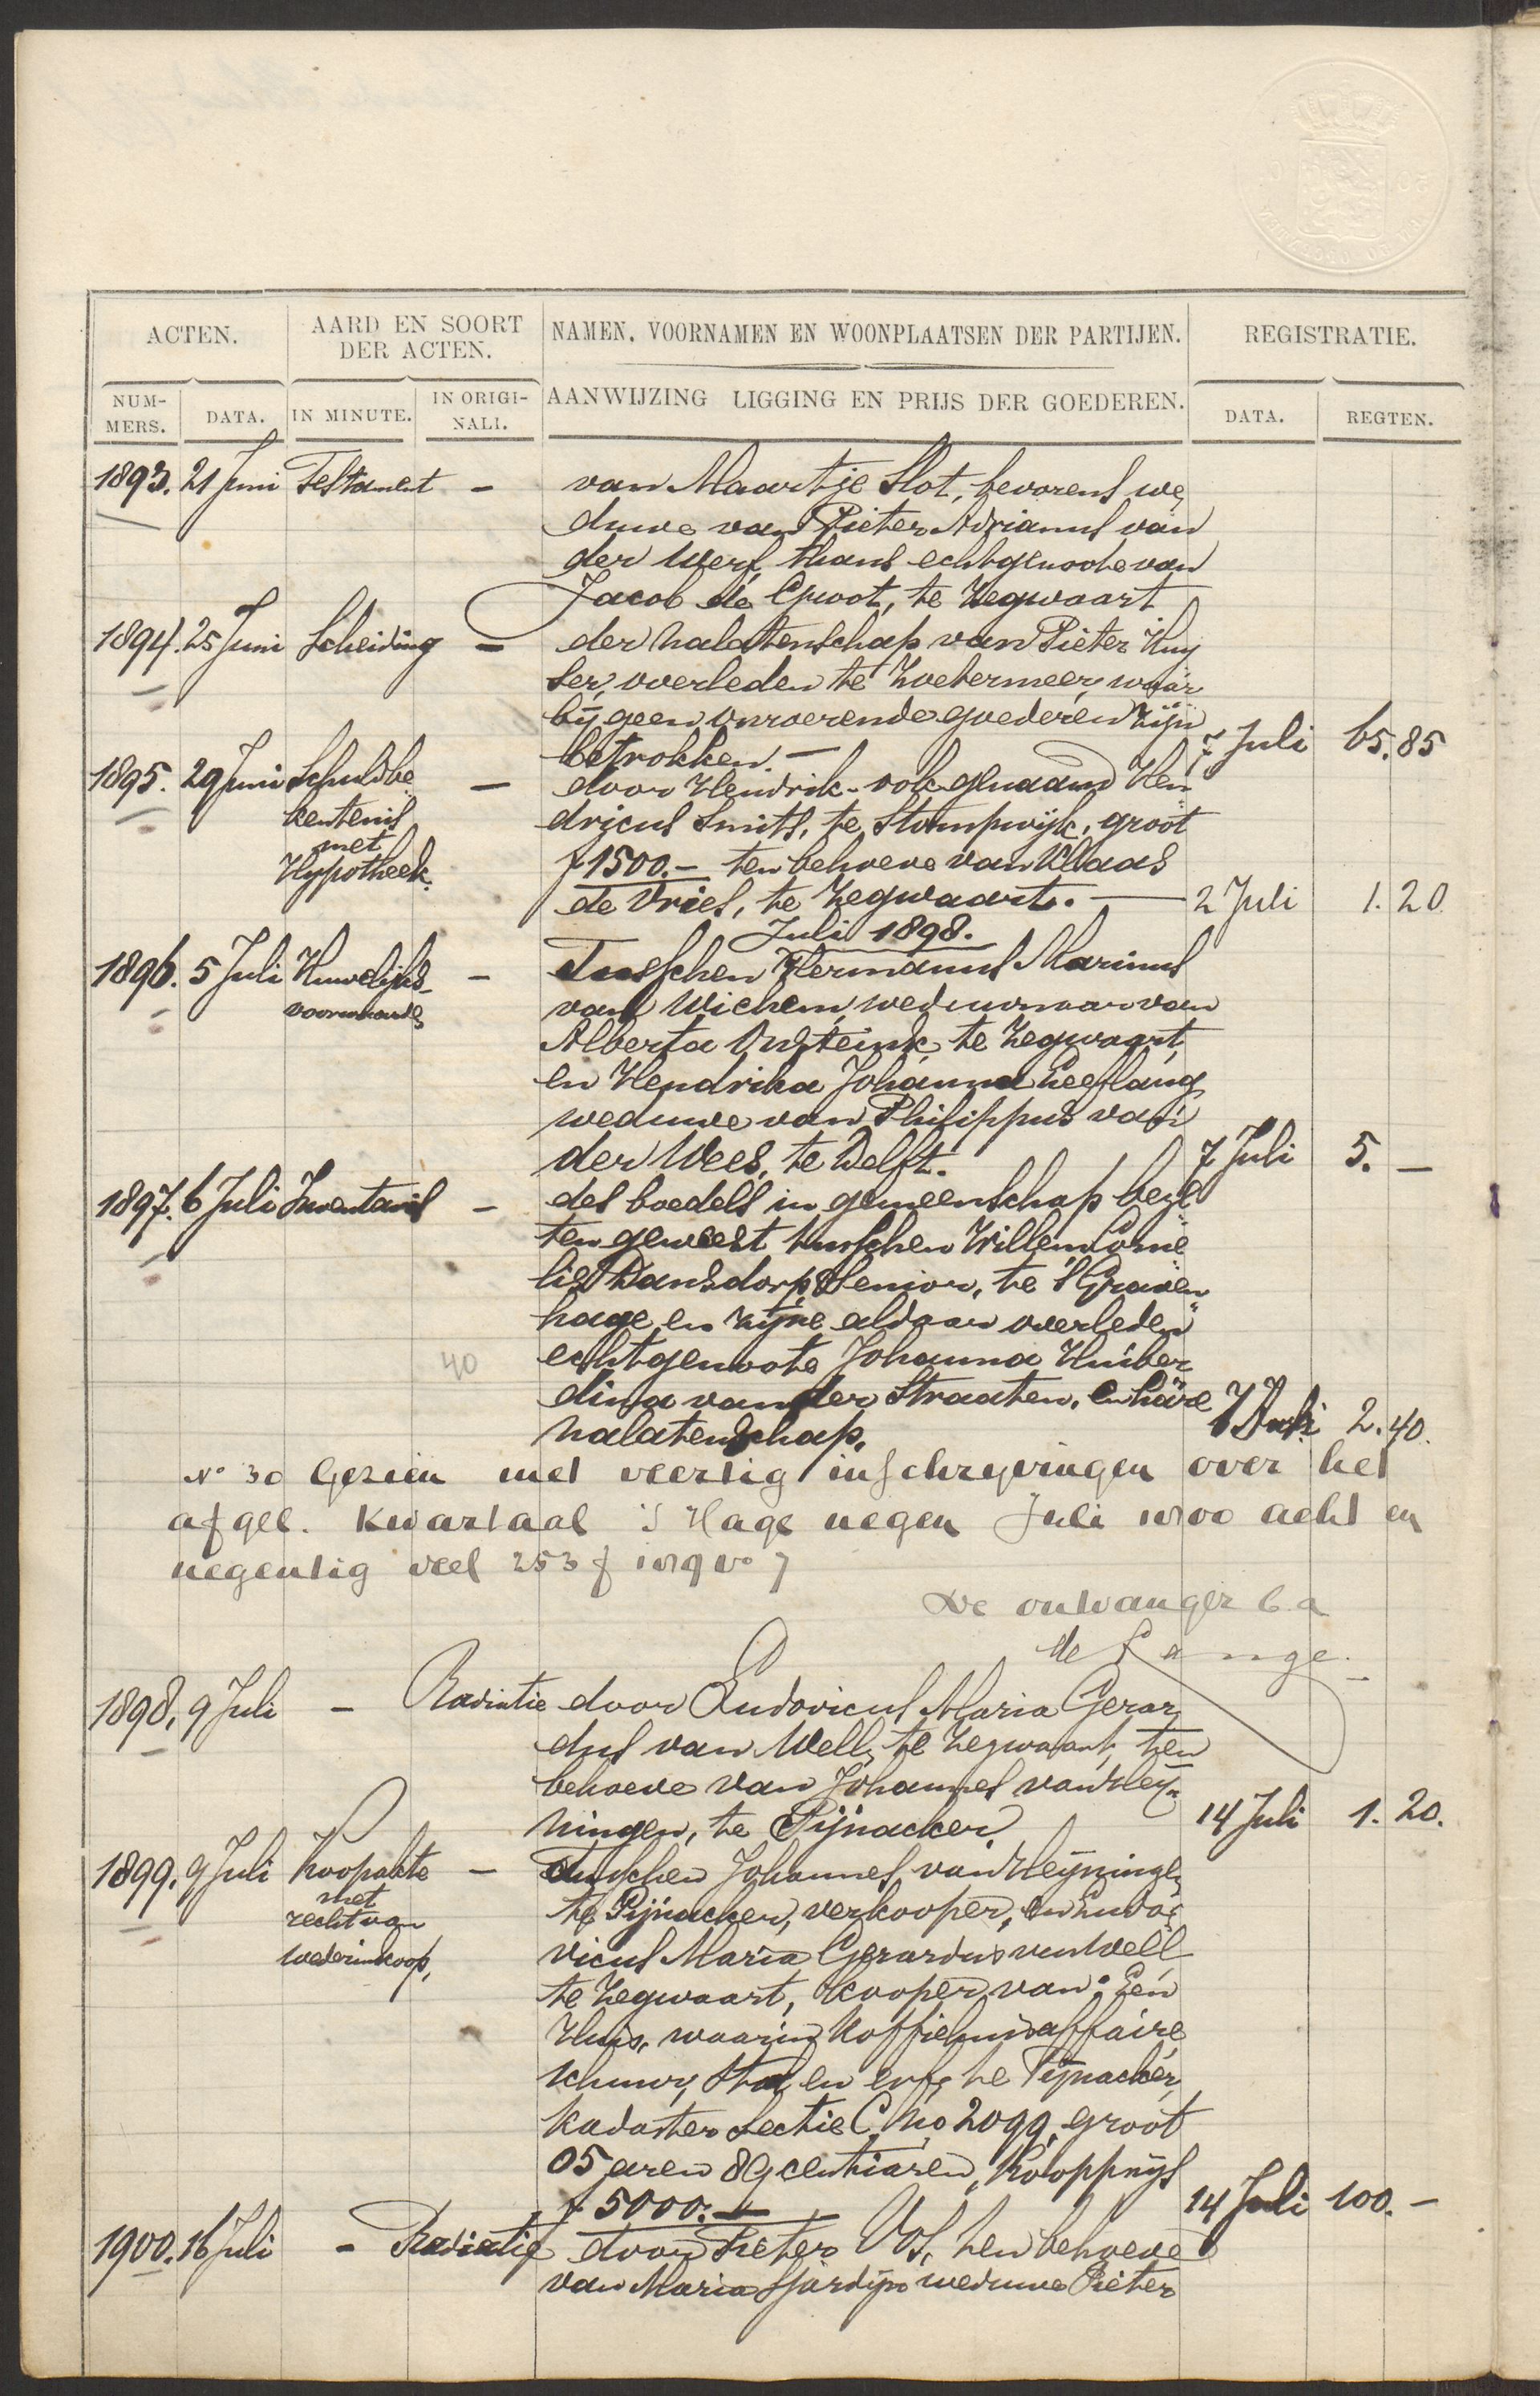 ACTEN. AARD EN SOORT DER ACTEN. NAMEN, VOORNAMEN EN WOONPLAATSEN DER PARTIJEN. REGISTRATIE.
NUM-MERS. DATA. IN MINUTE. IN ORIGI-NALI. AANWIJZING LIGGING EN PRIJS DER GOEDEREN. DATA. REGTEN.
1893. 21 Juni Testament - van Maartje Slot, bevorens we
duwe van Pieter Adrianus van
der Werf, thans echtgenoote van
Jacob de Groot, te Zegwaart
1894. 25 Juni Scheiding - der nalatenschap van Pieter Kuy
ser, overleden te Zoetermeer, waar
bij geen onroerende goederen zijn
betrokken. - 7 Juli 65.85
1895. 29 Juni Schuldbe - door Hendrik - ook genaamd Hen
kentenis dricus Smits, te Stompwijk, groot
met
Hypotheek. f 1500.- ten behoeve van Klaas
de Vries, te Zegwaart. - 2 Juli 1.20
Juli 1898.
1896. 5 Juli Huwelijks- - Tusschen Hermanus Marinus
voorwaarde van Wichem, weduwnaar van
Alberta te Zegwaart,
en Hendrika Johanna Leeflang
weduwe van Philippus van
der Wees, te Delft. 7 Juli 5. -
1897. 6 Juli Inventaris - des boedels in gemeenschap beze
ten geweest tusschen Willem Corne
lis Dansdorp Senior, te 's Graven
hage en zijne aldaar overleden
40 echtgenoote Johanna Huiber
dina van der Straaten, en hare
nalatenschap. 7 Juli 2.40.
No 30 Gezien met veertig inschryvingen over het
afgel. kwartaal 's Hage negen Juli 1800 acht en
negentig deel 253 f 189 vo 7
De ontvanger b.a
de Lange.
1898. 9 Juli - Radiatie door Ludovicus Maria Gerar
dus van Well, te Zegwaart, ten
behoeve van Johannes van Heij
ningen, te Pijnacker. 14 Juli 1.20.
1899. 9 Juli Koopakte - Tusschen Johannes van Heijningen
met
recht van te Pijnacker, verkooper, en Ludo
wederinkoop, vicus Maria Gerardus van Well
te Zegwaart, kooper van: Een
Huis, waarin koffiehuisaffaire,
schuur, stal en erf, te Pijnacker,
kadaster Sectie C No 2099, groot
05 aren 89 centiaren, Koopprijs
f 5000.- 14 Juli 100.-
1900. 16 Juli - Radiatie door Pieter Vos, ten behoeve
van Maria weduwe Pieter